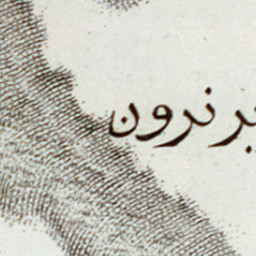 بر نرون